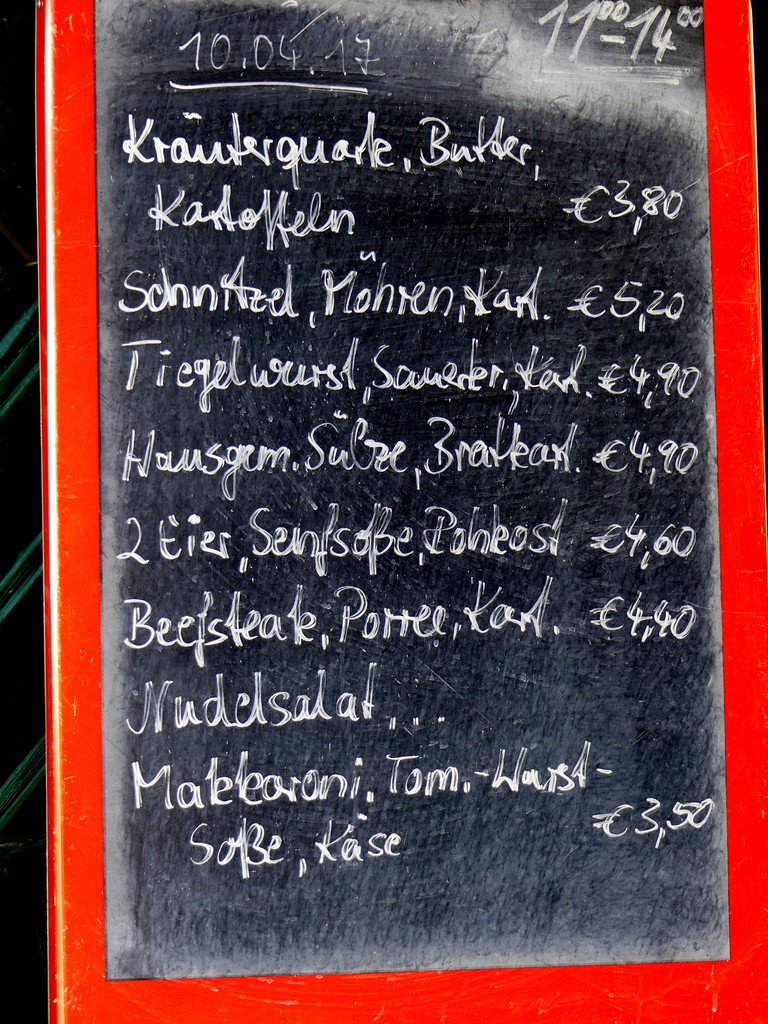 10.04.17
11⁰⁰-14⁰⁰
Kräuterquark, Butter,
Kartoffeln €3,80
Schnitzel, Möhren, Kart. €5,20
Tiegelwurst, Sauerkr., Kart. €4,90
Hausgem. Sülze, Bratkart. €4,90
2 Eier, Senfsoße, Rohkost €4,60
Beefsteak, Porree, Kart. €4,40
Nudelsalat, ...
Makkaroni, Tom.-Wurst-
Soße, Käse €3,50